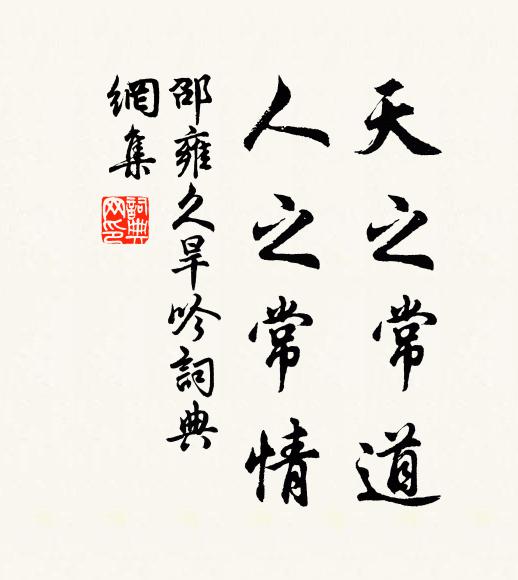 天之常道
人之常情
邵雍久旱吟詞典
網集
詞典
网印